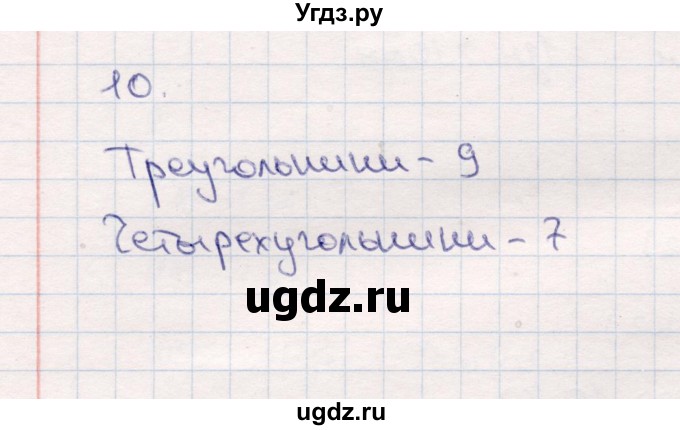 Угдз.ру
10.
Треугольники - 9
Четырехугольники - 7
ugdz.ru
ugdz.ru